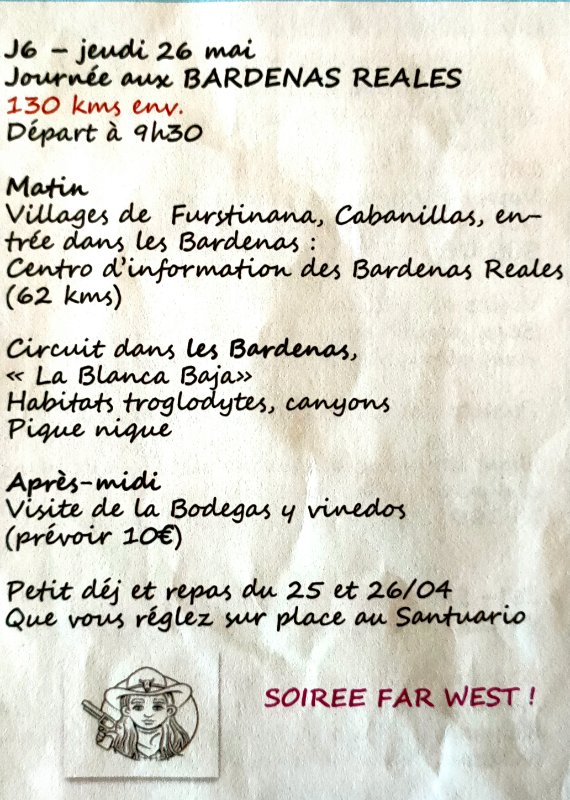 J6 – jeudi 26 mai
Journée aux BARDENAS REALES
130 kms env.
Départ à 9h30
Matin
Villages de Furstinana, Cabanillas, en-
trée dans les Bardenas :
Centro d'information des Bardenas Reales
(62 kms)
Circuit dans les Bardenas,
« La Blanca Baja»
Habitats troglodytes, canyons
Pique nique
Après-midi
Visite de la Bodegas y vinedos
(prévoir 10€)
Petit déj et repas du 25 et 26/04
Que vous réglez sur place au Santuario
SOIREE FAR WEST !